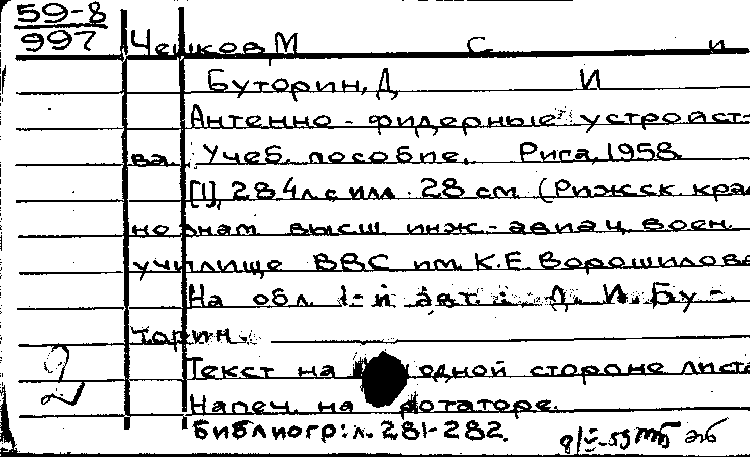 59-8
997
Чешков, М С и
Буторин, Д И
Антенно-фидерные устройст-
ва. Учеб. пособие. Рига, 1958.
[1], 284 л. с илл. 28 см (Рижск. крас
нознам высш инж.-авиац. воен.
училище ВВС им. К.Е. Ворошилова
На обл. 1-й авт.: Д. И. Бу-
торин.
Текст на одной стороне листа
Напеч. на ротаторе.
Библиогр: л. 281-282.
2